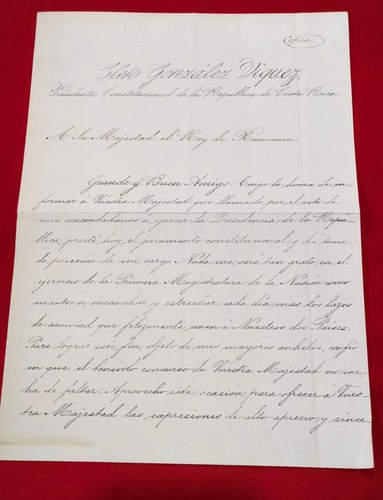 Copia
Cleto González Víquez,
Presidente Constitucional de la República de Costa Rica
A Su Majestad el Rey de Rumania
Grande y Buen Amigo: Tengo la honra de in-
formar á Vuestra Majestad que llamado por el voto de
mis conciudadanos á ejercer la Presidencia de la Repú-
blica, presté hoy el juramento constitucional y he toma-
do posesión de mi cargo. Nada me será tan grato, en el
ejercicio de la Primera Magistratura de la Nación como
mantener, ensanchar y estrechar cada día más los lazos
de amistad que felizmente unen á Nuestros dos Países.
Para lograr este fin, objeto de mis mayores anhelos, confío
en que el benévolo concurso de Vuestra Majestad no me
ha de faltar. Aprovecho esta ocasión para ofrecer á Vues-
tra Majestad las expresiones de alto aprecio y since-